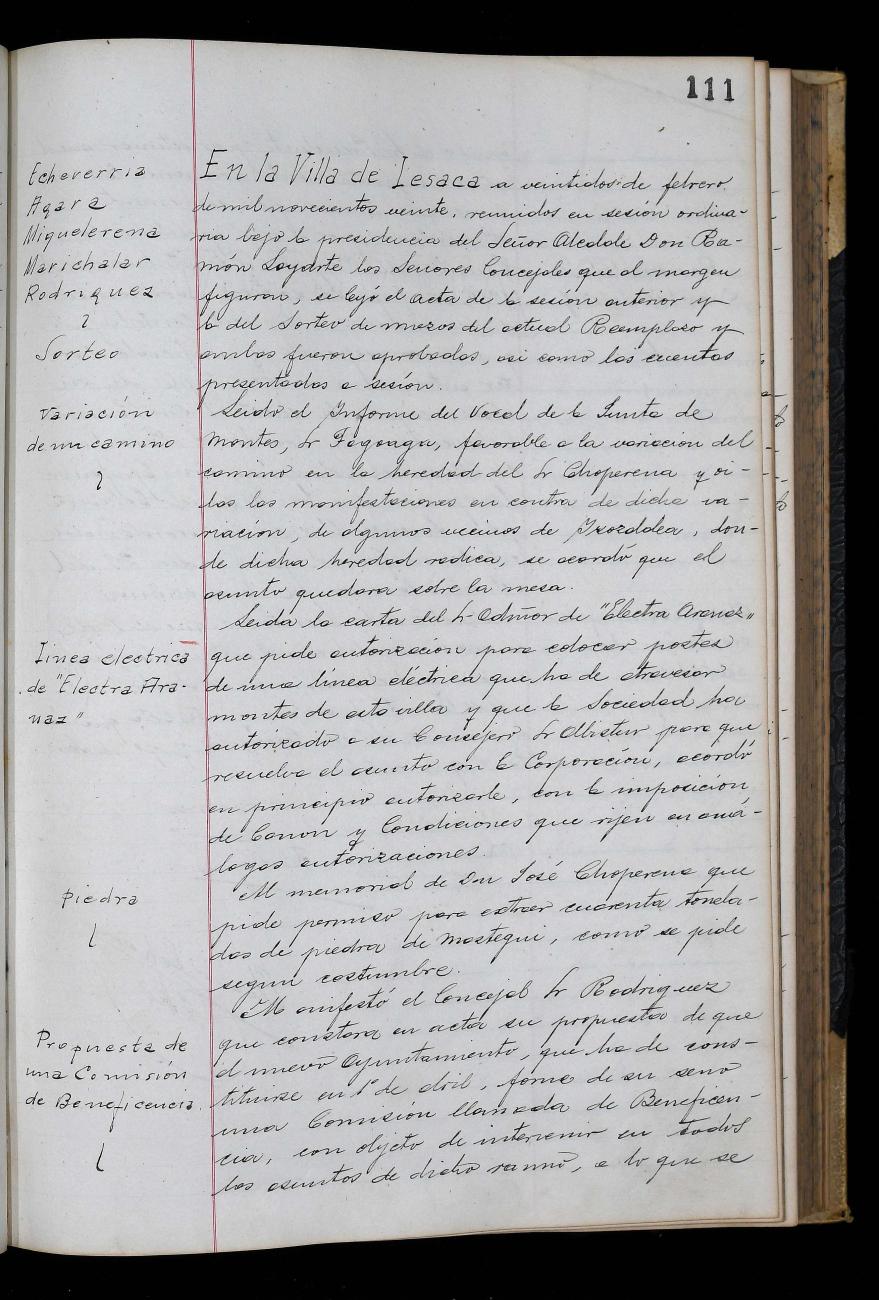 111
Echeverria
Agara
Miguelerena
Marichalar
Rodriguez
Sorteo
En la Villa de Lesaca a veintidos de febrero
de mil novecientos veinte, reunidos en sesión ordina-
ria bajo la presidencia del Señor Alcalde Don Ra-
món Loyarte los Senores Concejales que al margen
figuran, se leyó el acta de la sesión anterior y
la del Sorteo de mozos del actual Reemplaso y
ambas fueron aprobadas, asi como las cuentas
presentadas a sesión.
Variación
de un camino
Leido el Informe del Vocal de la Junta de
Montes, Sr Fagoaga, favorable a la variacion del
camino en la heredad del Sr Choperena y oi-
das las manifestaciones en contra de dicha va-
riación, de algunos vecinos de, don-
de dicha heredad radica, se acordó que el
asunto quedara sobre la mesa.
Linea electrica
de "Electra Ara-
naz"
Leida la carta del Sr Admor de "Electra Aranaz"
que pide autorizacion para colocar postes
de una línea eléctrica que ha de atravesar
montes de esta villa y que la Sociedad ha
autorizado a su Consejero Sr Albistur para que
resuelva el asunto con la Corporación, acordó
en principio autorizarle, con la imposición
de Canon y Condiciones que rijen en aná-
logas autorizaciones.
Piedra
Al memorial de Don José Choperena que
pide permiso para extraer cuarenta tonela-
das de piedra de Mastegui, como se pide
segun costumbre.
Propuesta de
una Comisión
de Beneficencia.
Manifestó el Concejal Sr Rodriguez
que constara en acta su propuesta de que
el nuevo Ayuntamiento, que ha de cons-
tituirse en 1º de abril, forme de su seno
una Comisión llamada de Beneficen-
cia, con objeto de intervenir en todos
los asuntos de dicho ramo, a lo que se